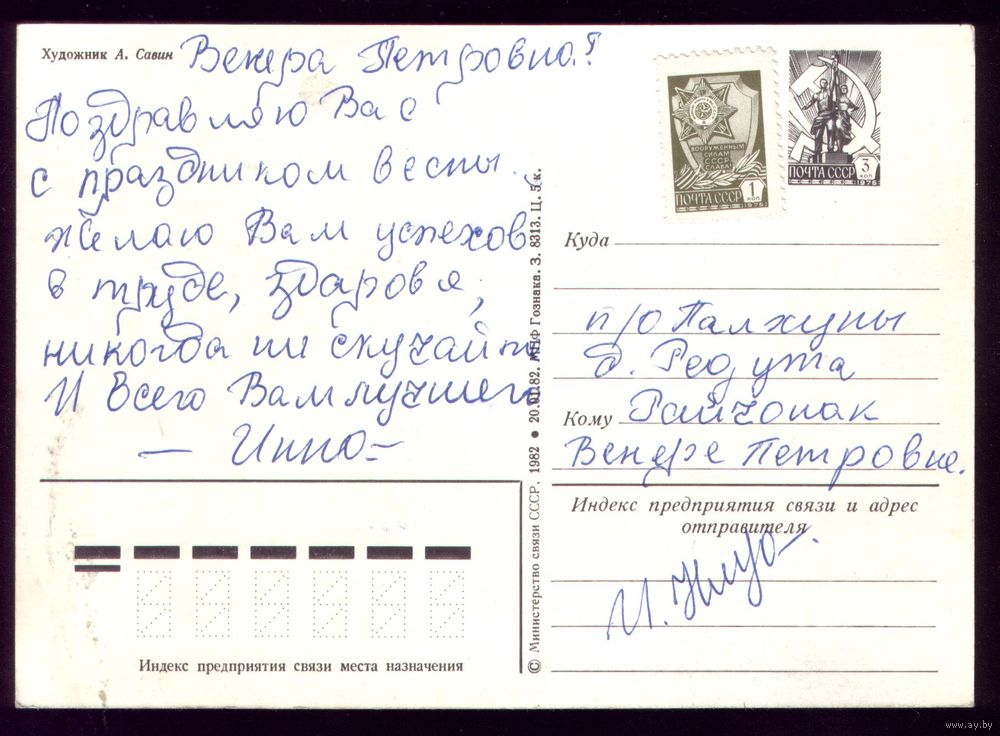 Художник А. Савин
Венера Петровна!
Поздравляю Вас
с праздником весны.
желаю Вам успехов
в труде, здаровя,
никогда ни скучайте
И всего Вам лучшего
— Инна —
ВООРУЖЕННЫМ
СИЛАМ
СССР
СЛАВА!
ПОЧТА СССР 1 КОП
1976
ПОЧТА СССР 3 КОП
1976
Куда
п/о Палхуны
д. Редута
Кому Райчонак
Венере Петровне.
Индекс предприятия связи и адрес
отправителя
Индекс предприятия связи места назначения
© Министерство связи СССР, 1982 ● 20.01.82. МПФ Гознака. З. 8313. Ц. 5 к.
www.ay.by